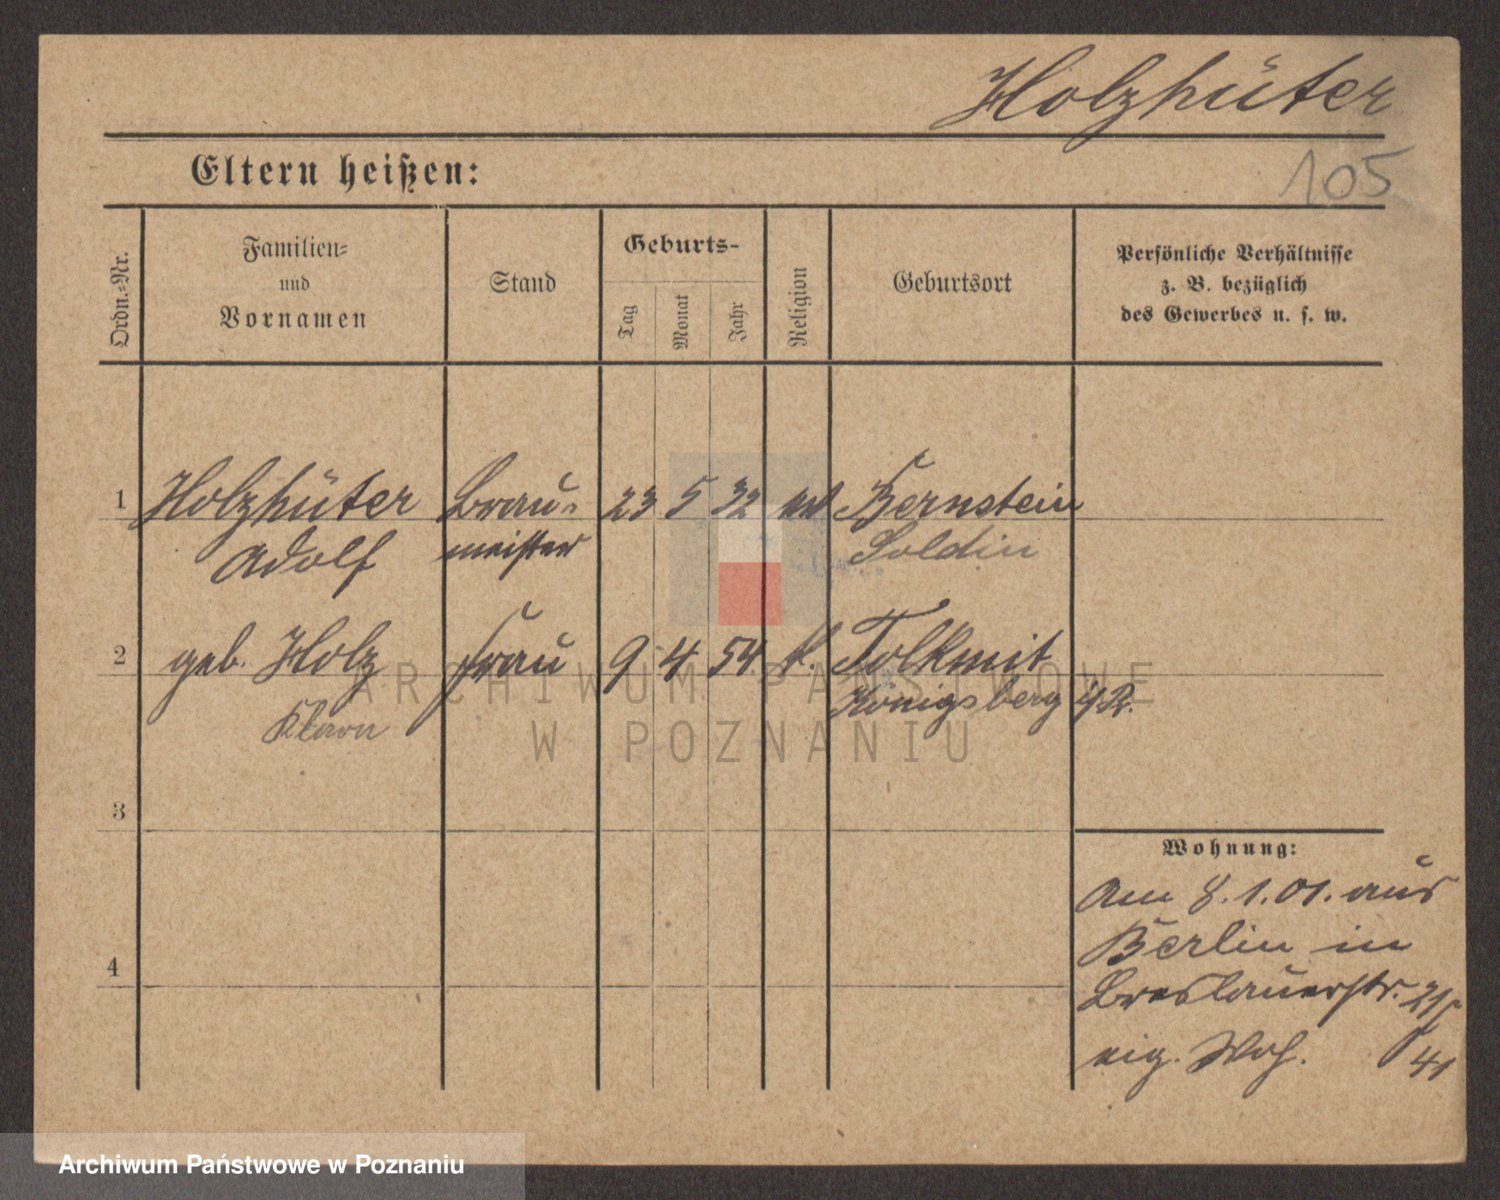 Holzhüter
105
Eltern heißen:
Ordn.-Nr.
Familien-
und
Vornamen
Stand
Geburts-
Tag
Monat
Jahr
Religion
Geburtsort
Persönliche Verhältnisse
z. B. bezüglich
des Gewerbes u. s. w.
1 Holzhüter Brau- 23 5 32 ev Bernstein
Adolf meister Soldin
2 geb. Holz Frau 9 4 54 k. Tolkmit
Klara Königsberg i/Pr.
ARCHIWUM PAŃSTWOWE
W POZNANIU
3
Wohnung:
Am 8.1.01. aus
Berlin in
4
Breslauerstr. 21
eig. Woh. 41
Archiwum Państwowe w Poznaniu